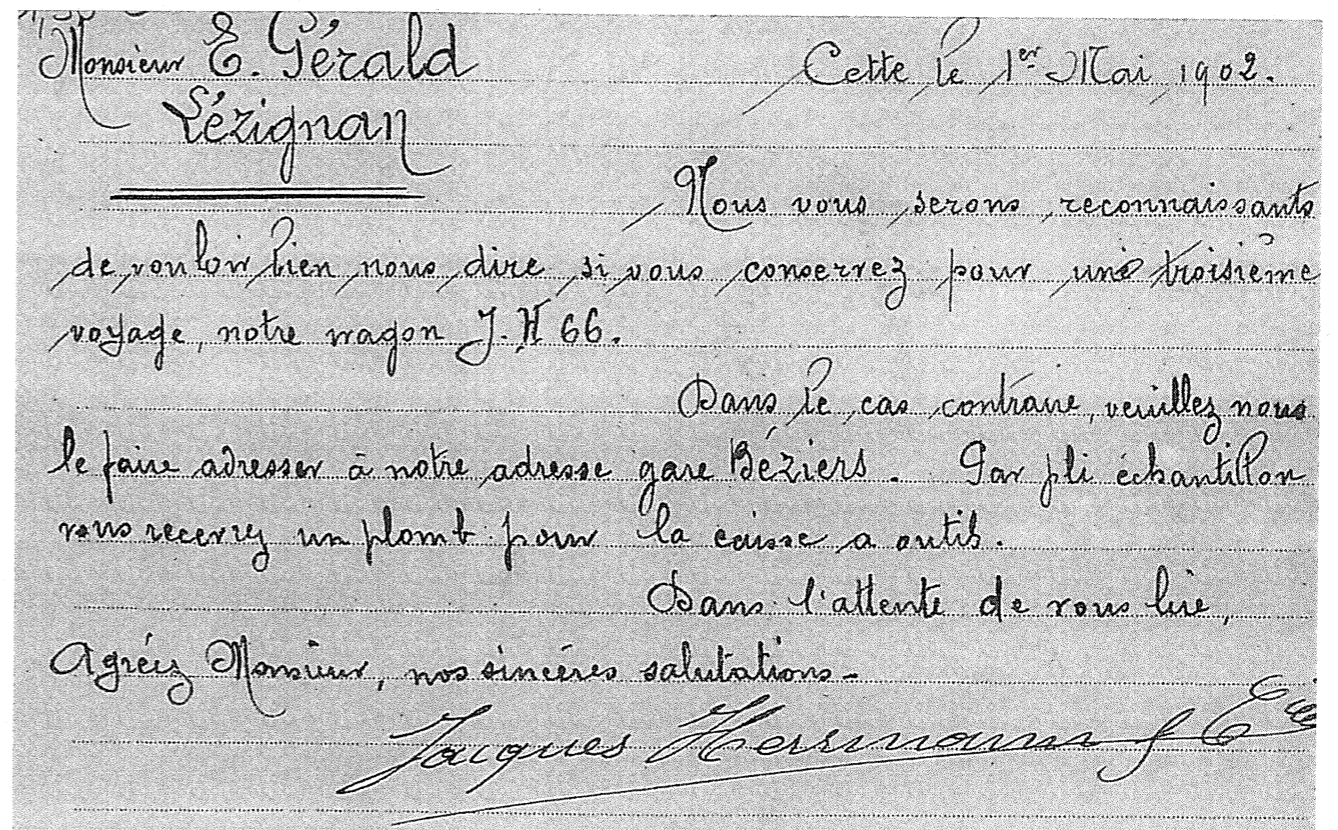 Monsieur E. Gérald
Cette le 1er Mai 1902.
Lézignan
Nous vous serons reconnaissants
de vouloir bien nous dire si vous conservez pour une troisième
voyage, notre wagon J. H 66.
Dans le cas contraire, veuillez nous
le faire adresser à notre adresse gare Béziers. Par pli échantillon
vous recevrez un plomb pour la caisse a outils.
Dans l'attente de vous lire,
Agréez Monsieur, nos sincères salutations-
Jacques Herrmann & Cie